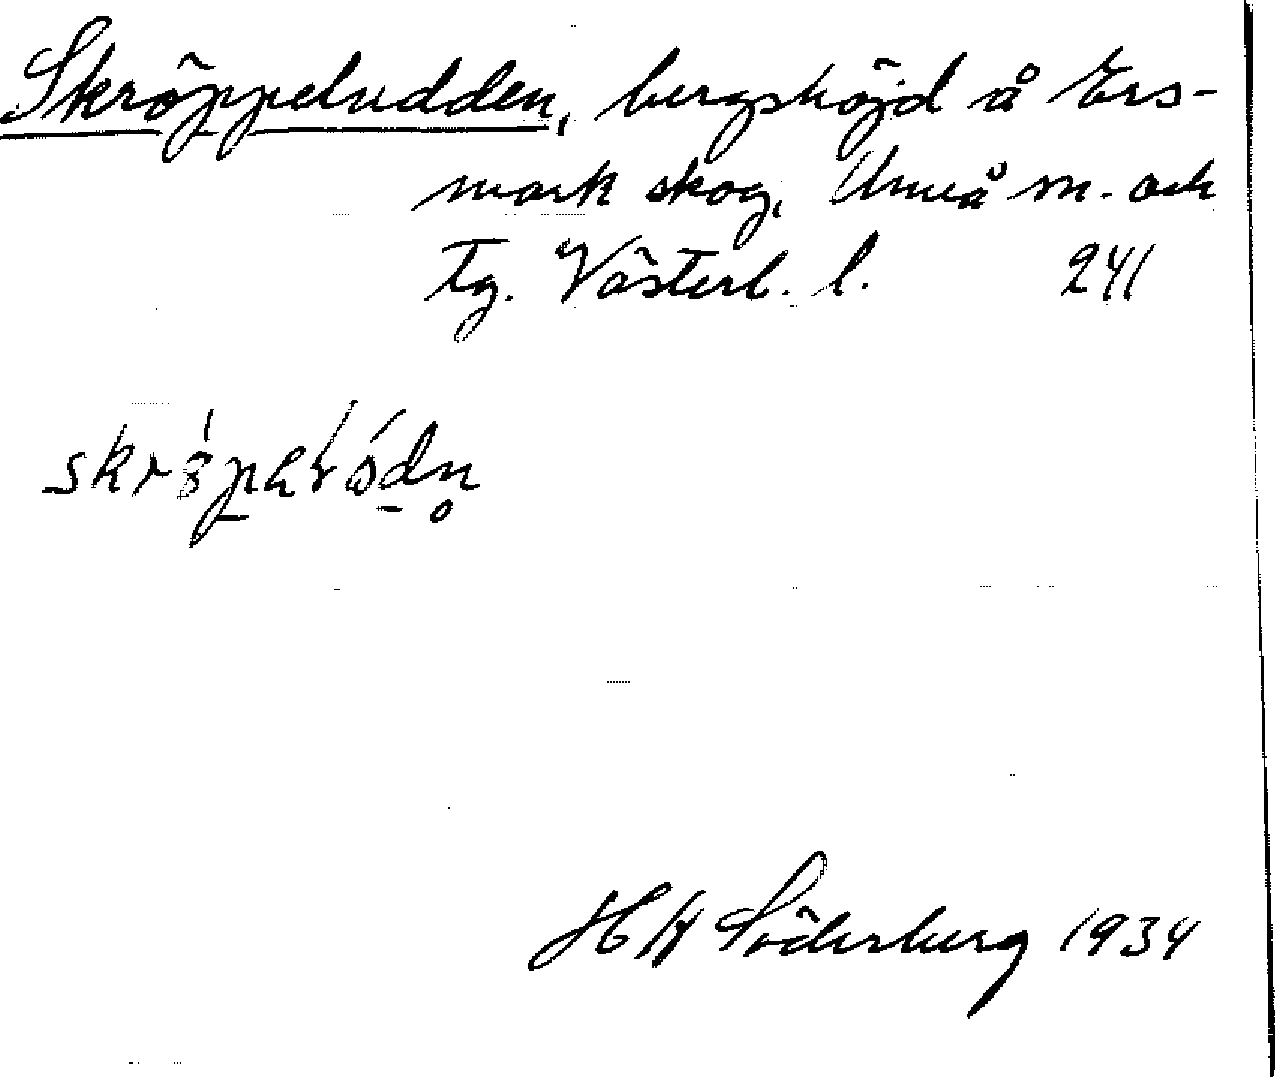 Skröppeludden, bergshöjd å Ers-
mark skog, Umeå sn. och
tg. Västerb. l. 241
H W Söderberg 1934